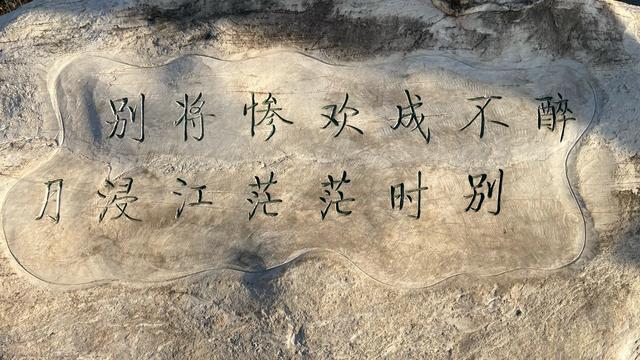 醉不成欢惨将别
别时茫茫江浸月